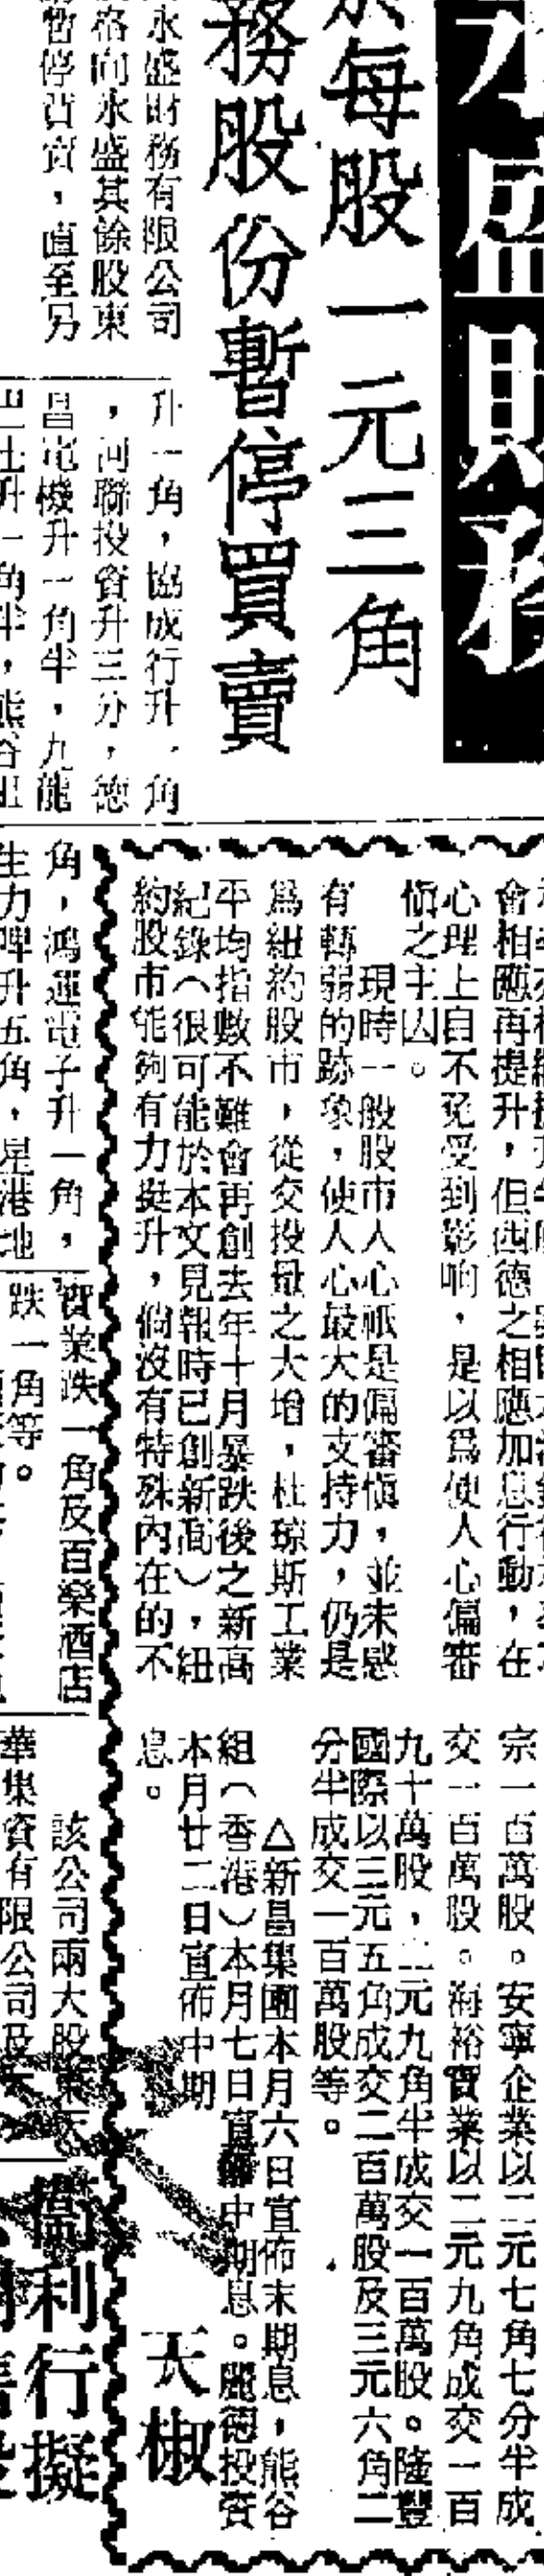 永盛財務
每股一元三角
務股份暫停買賣
永盛財務有限公司
向永盛其餘股東
暫停買賣，直至另
升一角，協成行升一角
，河聯投資升三分，德
昌電機升一角半，九龍
巴士升一角半，熊谷組
角，鴻運電子升一角，
生力啤升五角，星港地
實業跌一角及百樂酒店
跌一角等。
會相應再提升，但西德之相應加息行動，在
心理上自不免受到影响，是以爲使人心偏審
慎之主因。
現時一般股市人心祇是偏審慎，並未感
有轉弱的跡象，使人心最大的支持力，仍是
爲紐約股市，從交投量之大增，杜琼斯工業
平均指數不難會再創去年十月暴跌後之新高
紀錄（很可能於本文見報時已創新高），紐
約股市能夠有力挺升，倘沒有特殊內在的不
宗一百萬股。安寧企業以二元七角七分半成
交一百萬股。海裕實業以二元九角成交一百
九十萬股，二元九角半成交一百萬股。隆豐
國際以三元五角成交二百萬股及三元六角二
分半成交一百萬股等。
△新昌集團本月六日宣佈末期息，熊谷
組（香港）本月七日宣佈中期息。麗德投資
本月廿二日宣佈中期
息。
天椒
該公司兩大股東天
華集資有限公司及
利行擬